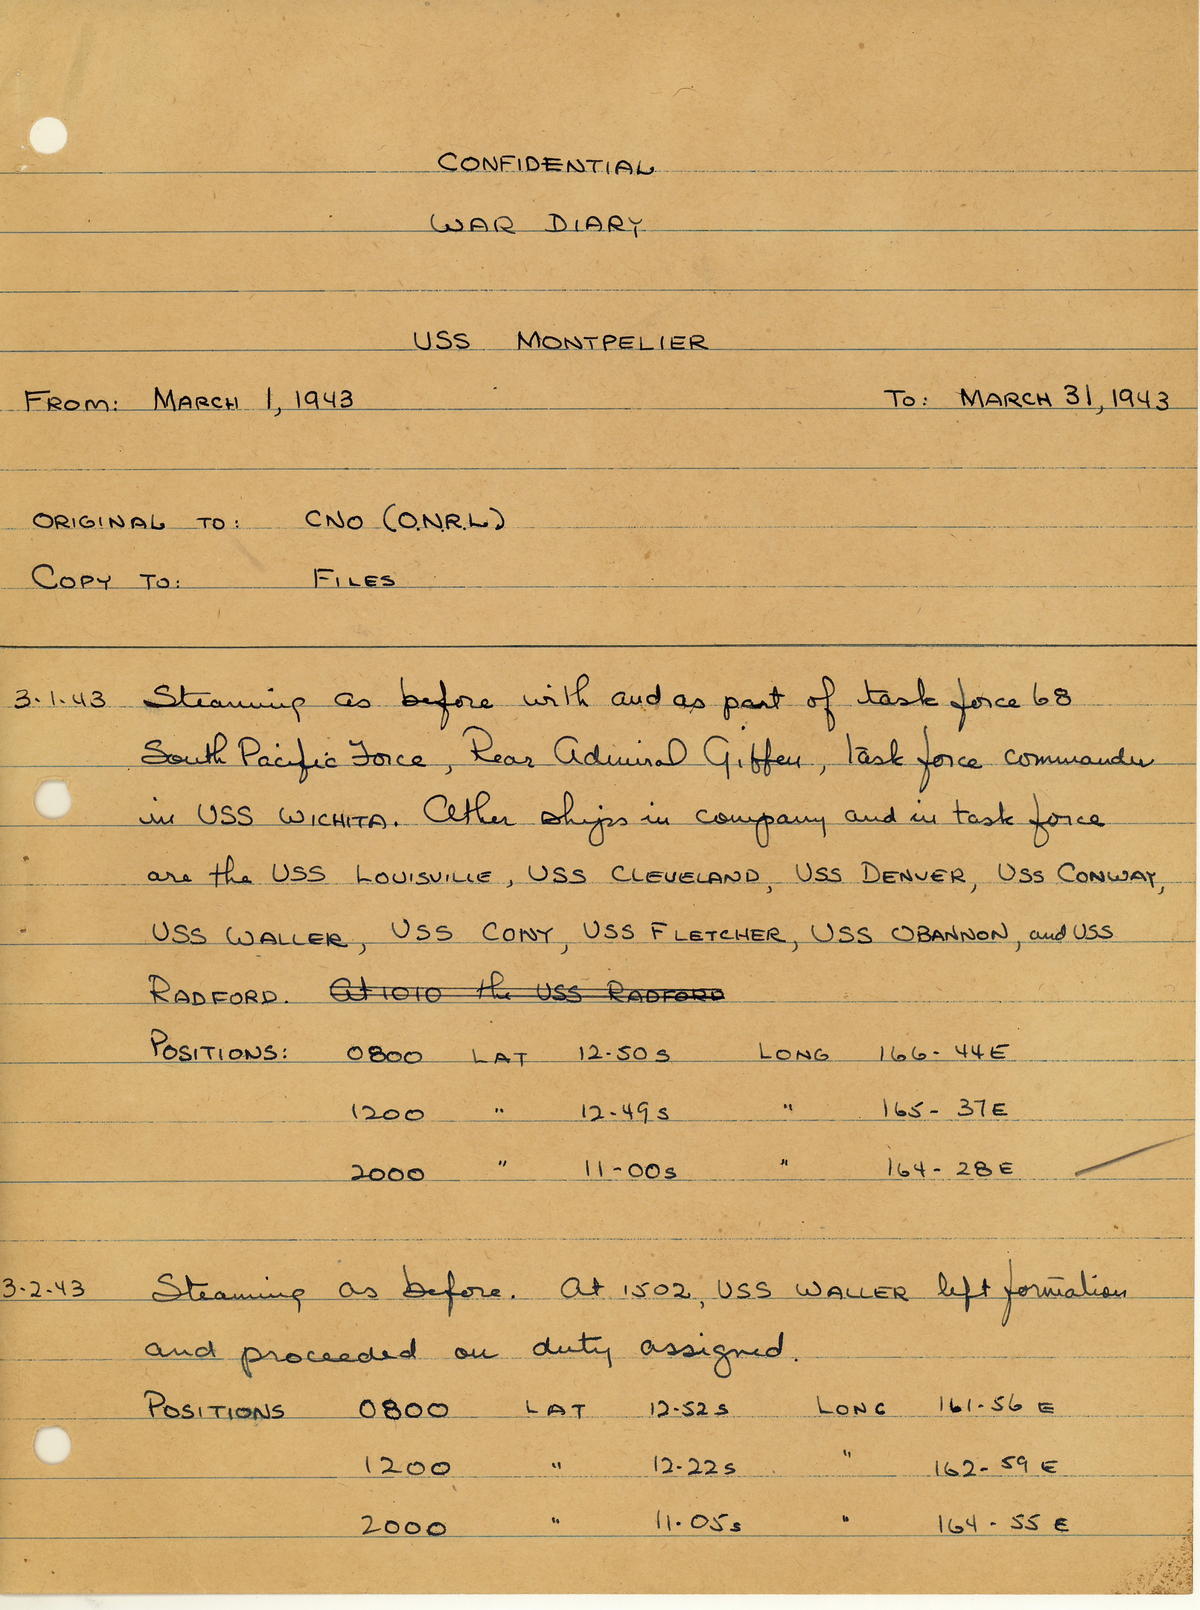 CONFIDENTIAL
WAR DIARY
USS MONTPELIER
FROM: MARCH 1, 1943 TO: MARCH 31, 1943
ORIGINAL TO: CNO (O.N.R.L)
COPY TO: FILES
3-1-43 Steaming as before with and as part of task force 68
South Pacific Force, Rear Admiral Giffen, task force commander
in USS WICHITA. Other ships in company and in task force
are the USS LOUISVILLE, USS CLEVELAND, USS DENVER, USS CONWAY,
USS WALLER, USS CONY, USS FLETCHER, USS OBANNON, and USS
RADFORD. At 1010 the USS RADFORD
POSITIONS: 0800 LAT 12-50S LONG 166-44E
1200 " 12-49S " 165-37E
2000 " 11-00S " 164-28E
3-2-43 Steaming as before. At 1502, USS WALLER left formation
and proceeded on duty assigned.
POSITIONS 0800 LAT 12-52S LONG 161-56 E
1200 " 12-22S " 162-59 E
2000 " 11-05S " 164-55 E